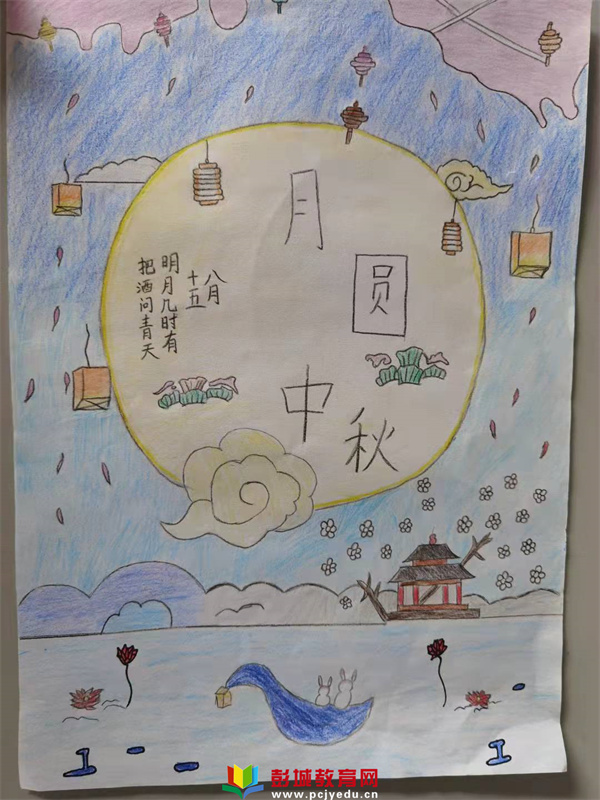 月
圆
中
秋
八月
十五
明月几时有
把酒问青天
彭城教育网
www.pcjyedu.cn